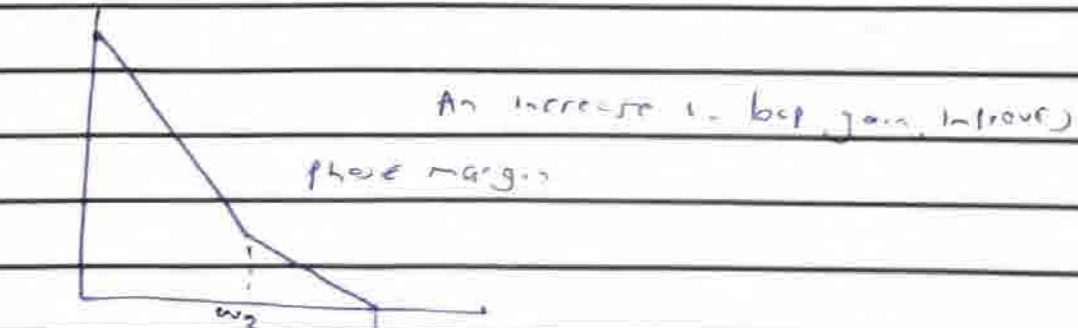 An increase in loop gain improves
phase margin
ωz